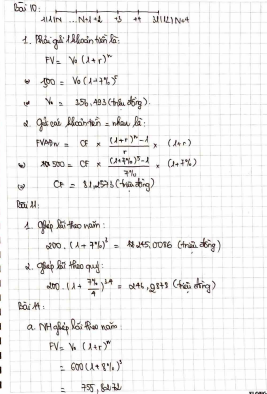 Bài 10:
1/1/N ... N+1 +2 +3 +4 31/12/N+4
1. Phải gửi 1 khoản tiền là:
FV = V₀ (1+r)ⁿ
500 = V₀ (1+7%)⁵
V₀ = 356,493 (triệu đồng).
2. Gửi các khoản tiền = nhau là:
FVADn = CF × ((1+r)ⁿ - 1)/r × (1+r)
500 = CF × ((1+7%)⁵ - 1)/7% × (1+7%)
CF = 81,2573 (triệu đồng)
Bài 11:
1. Ghép lãi theo năm:
200. (1 + 7%)³ = 245,0086 (triệu đồng)
2. Ghép lãi theo quý:
200. (1 + 7%/4)³·⁴ = 246,2878 (triệu đồng)
Bài 14:
a. NH ghép lãi theo năm
FV = V₀ (1+r)ⁿ
= 600 (1+8%)³
= 755,8272